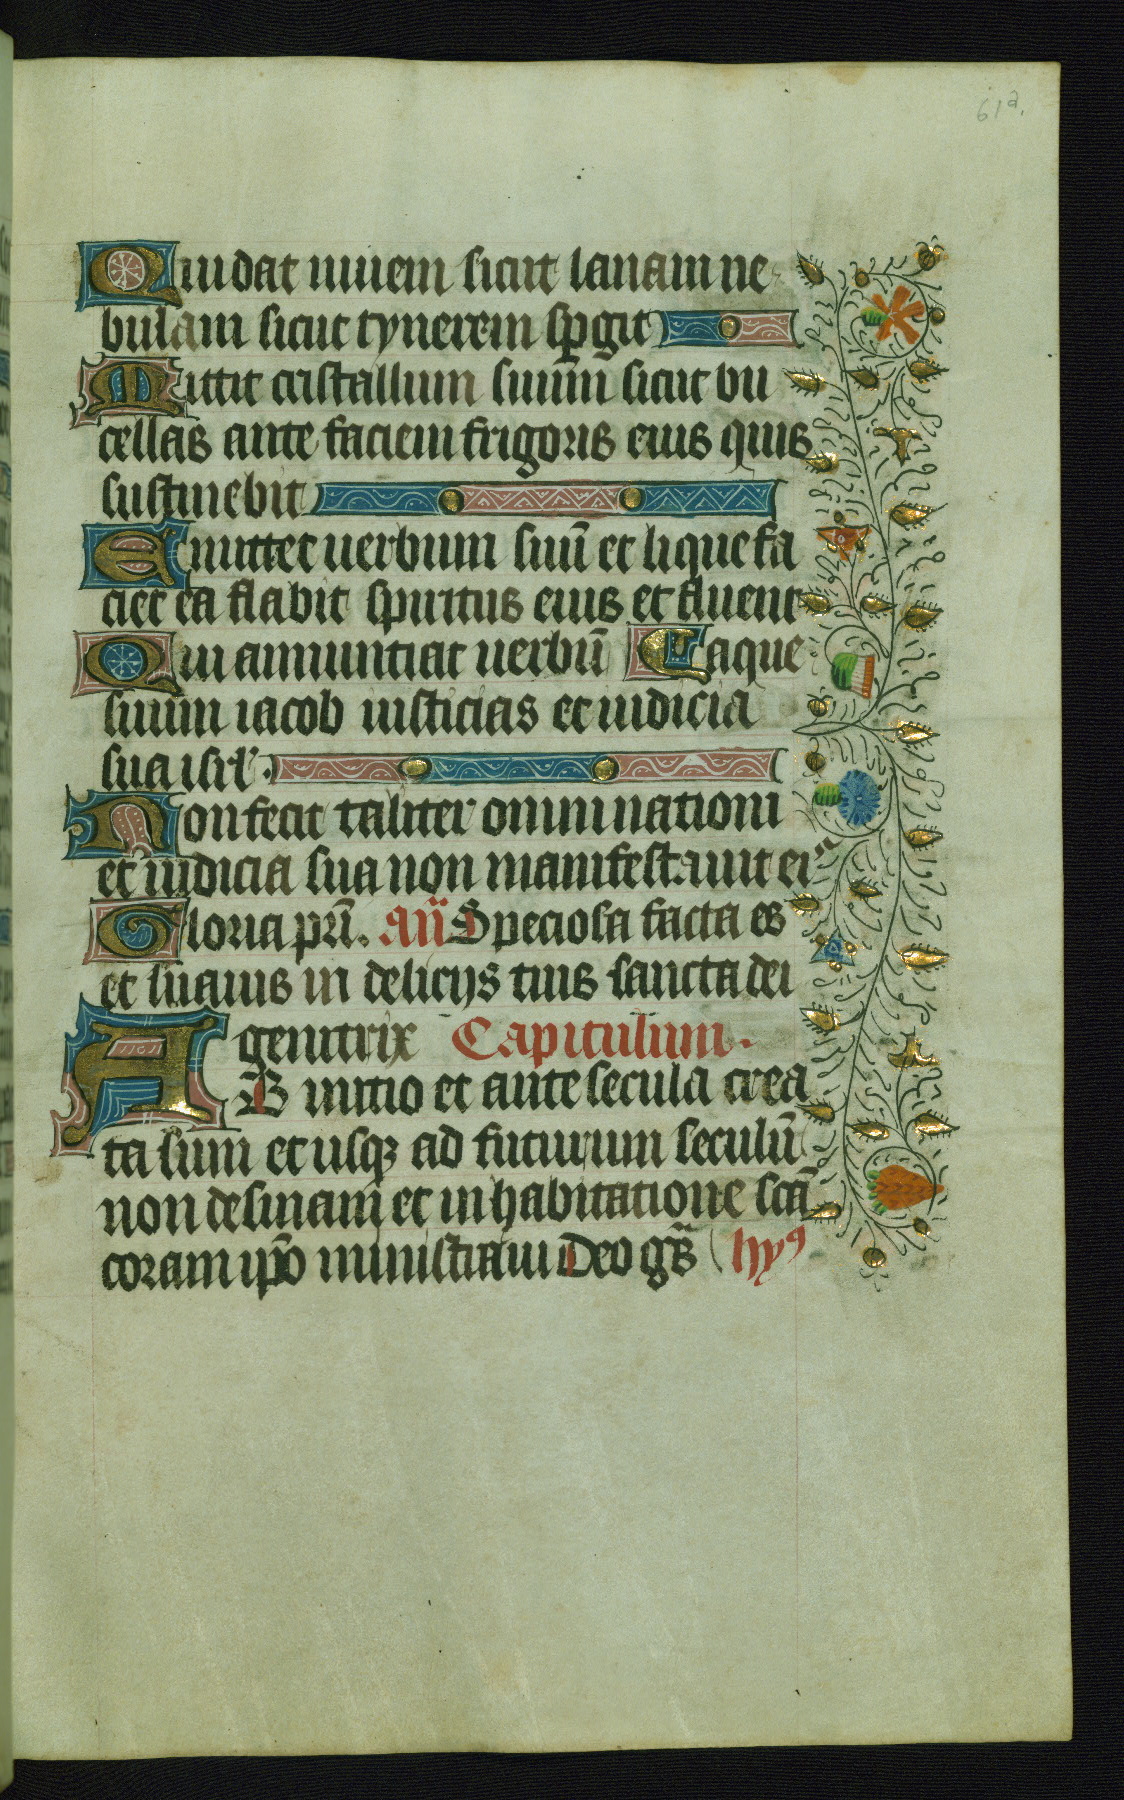 61a.
Qui dat niuem sicut lanam ne
bulam sicut cynerem spgit
Mittit cristallum suum sicut bu
cellas ante faciem frigoris eius quis
sustinebit
Emittet uerbum suū et liquefa
ciet ea flabit spiritus eius et fluent
Qui annuntiat uerbū Eaque
suum iacob iusticias et iudicia
sua isrl'.
Non fecit taliter omni nationi
et iudicia sua non manifestauit ei
Gloria pri. Añ Speciosa facta es
et suauis in delicijs tuis sancta dei
genitrix Capitulum.
AB initio et ante secula crea
ta sum et usqꝫ ad futurum seculū
non desinam et in habitatione scā
coram ip̄o ministraui Deo grās hyꝰ